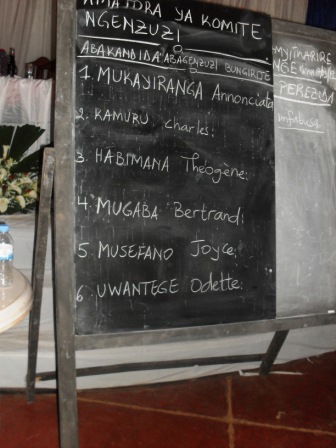 AMAJORA YA KOMITE
NGENZUZI
ABAKANDIDA: ABAGENZUZI BUNGIRIJE
1. MUKAYIRANGA Annonciata
2. KAMURU Charles:
3. HABIMANA Théogène:
4. MUGABA Bertrand:
5. MUSEFANO Joyce:
6. UWANTEGE Odette:
PEREZIDA